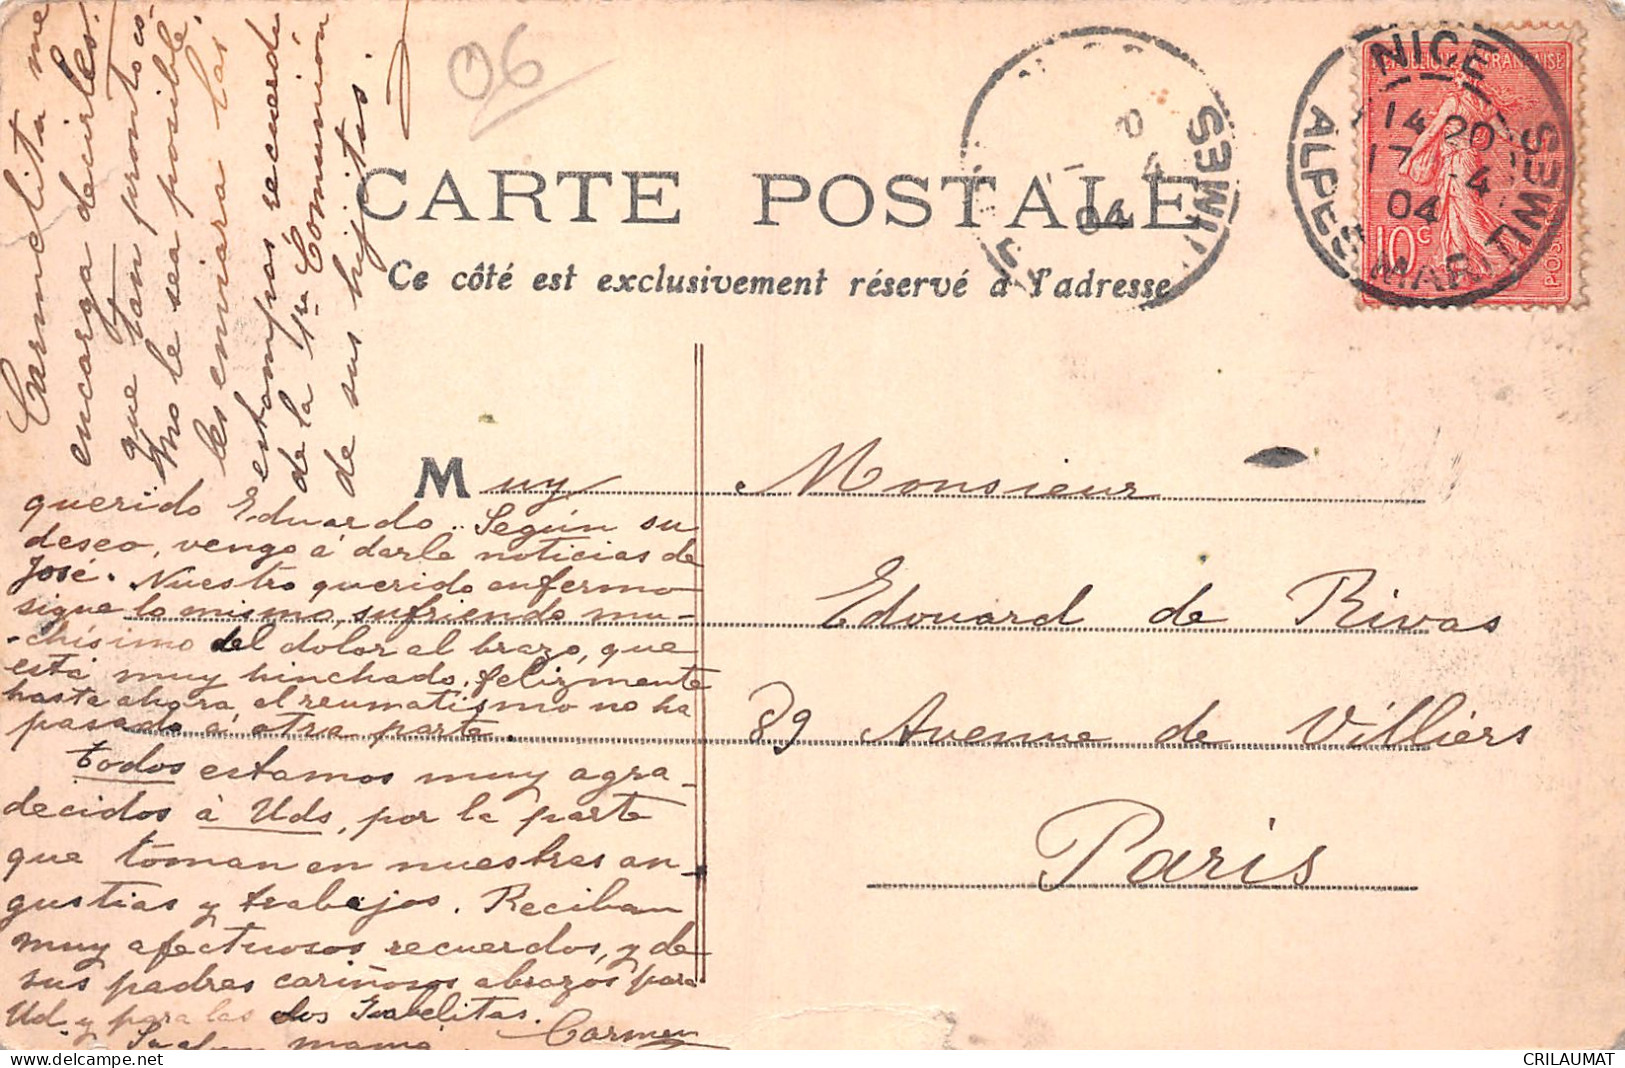 Carmelita me
encarga decirles
que tan pronto co-
mo le sea posible,
les enviara las
estampas recuerdo
de la 1re Comunión
de sus hijitas.
06
CARTE POSTALE
Ce côté est exclusivement réservé à l'adresse
NICE
ALPES MARITIMES
14 20
17 -4
04
REPUBLIQUE FRANÇAISE
10c
POSTES
4
04
Muy
querido Eduardo. Según su
deseo, vengo á darle noticias de
José. Nuestro querido enfermo
sigue lo mismo, sufriendo mu-
-chísimo del dolor al brazo, que
está muy hinchado, felizmente
hasta ahora el reumatismo no ha
pasado á otra parte.
Todos estamos muy agra-
decidos á Uds, por la parte
que toman en nuestras an-
gustias y trabajos. Reciban
muy afectuosos recuerdos, y de
sus padres cariñosos abrazos para
Ud. y para las dos Isabelitas.
mamá Carmen
Monsieur
Edouard de Rivas
89 Avenue de Villiers
Paris
delcampe.net
CRILAUMAT